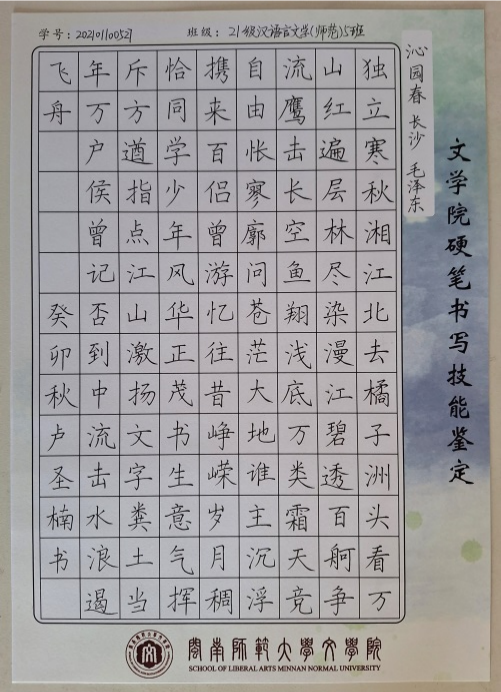 学号：202101100521
班级：21级汉语言文学(师范)5班
文学院硬笔书写技能鉴定
沁园春 长沙 毛泽东
独立寒秋湘江北去橘子洲头看万
山红遍层林尽染漫江碧透百舸争
流鹰击长空鱼翔浅底万类霜天竞
自由怅寥廓问苍茫大地谁主沉浮
携来百侣曾游忆往昔峥嵘岁月稠
恰同学少年风华正茂书生意气挥
斥方遒指点江山激扬文字粪土当
年万户侯曾记否到中流击水浪遏
飞舟 癸卯秋卢圣楠书
闽南师范大学文学院
SCHOOL OF LIBERAL ARTS MINNAN NORMAL UNIVERSITY